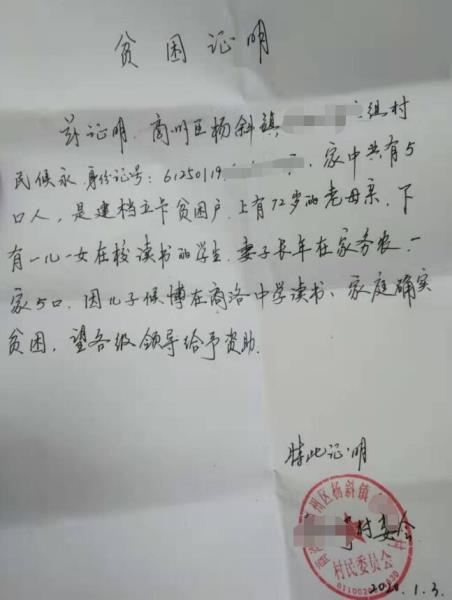 贫困证明
兹证明,商州区杨斜镇 组村
民候永,身份证号:61250119 ,家中共有5
口人,是建档立卡贫困户,上有72岁的老母亲,下
有一儿一女在校读书的学生,妻子长年在家务农,一
家5口,因儿子候博在商洛中学读书、家庭确实
贫困,望各级领导给予资助.
特此证明
州区杨斜镇 村
村委会
村民委员会
2020.1.3.